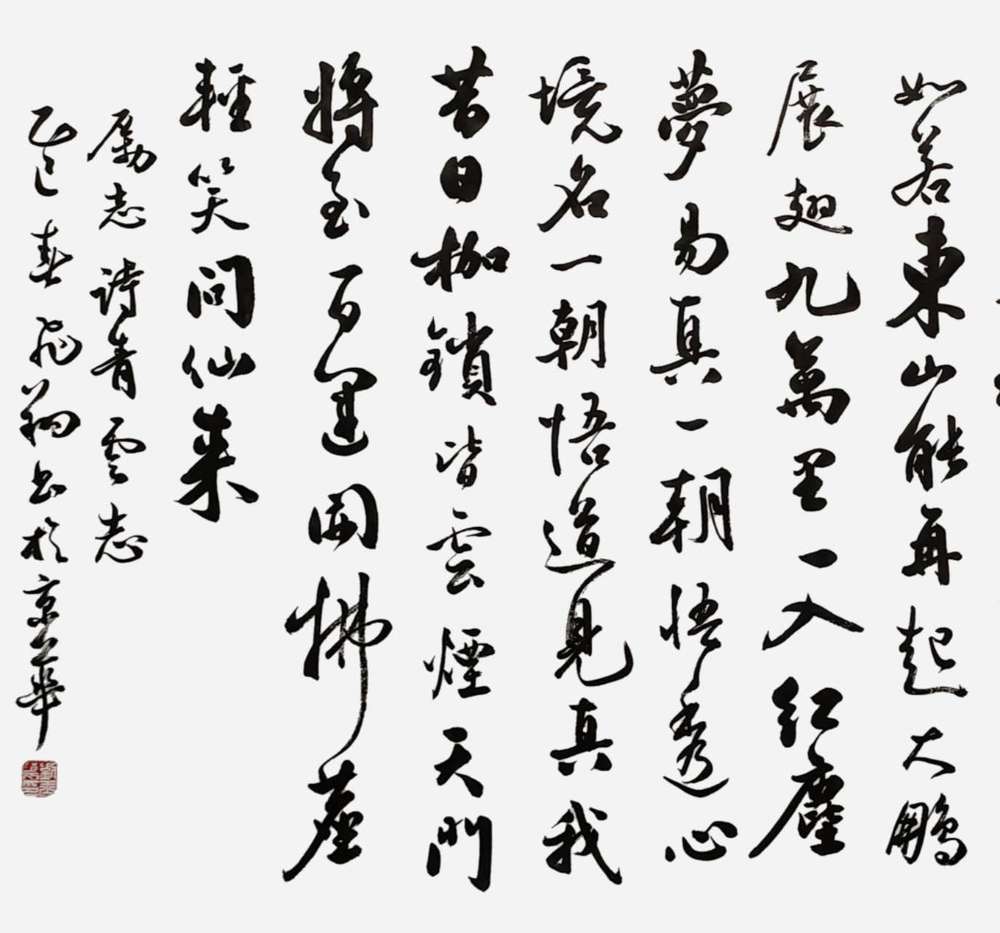 如若東山能再起大鵬
展翅九萬里一入紅塵
夢易真一朝悟透心
境名一朝悟道見真我
昔日枷鎖皆雲煙天門
將至百運開拂塵
輕笑問仙来
勵志詩青雲志
乙巳春飛翔书於京華